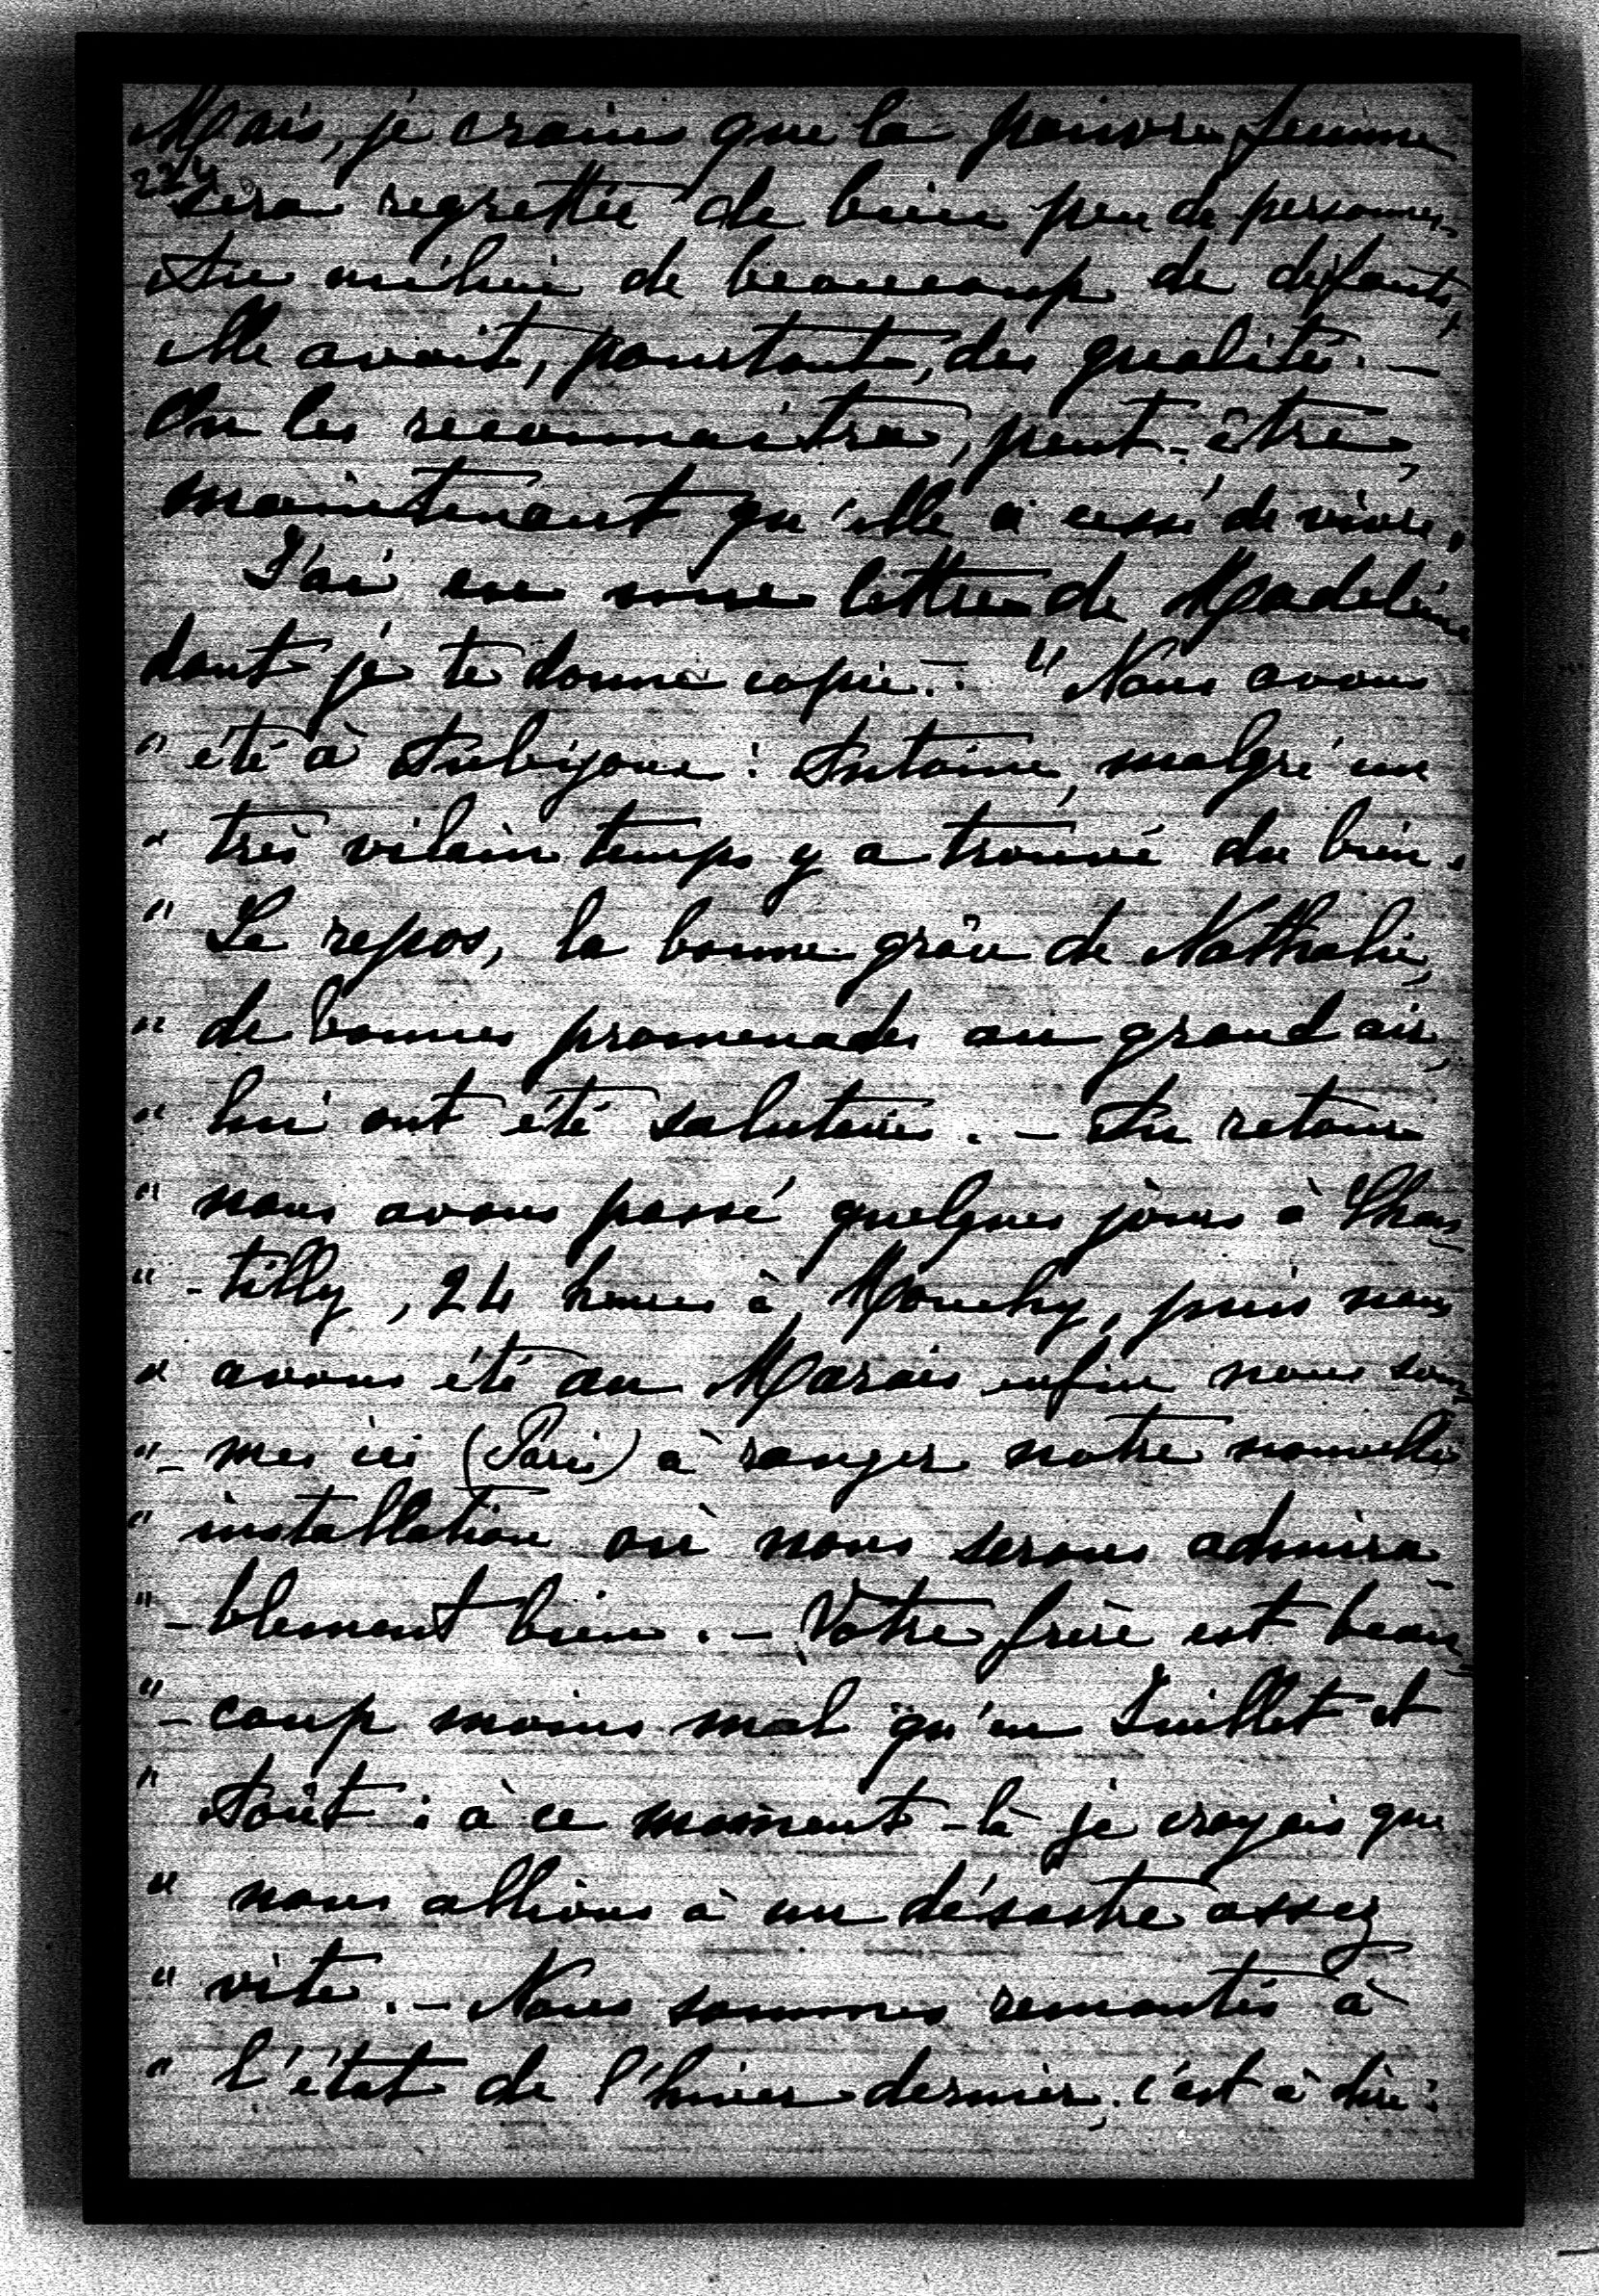 Mais, je crains que la pauvre femme
224
sera regrettée de bien peu de personnes.
Au milieu de beaucoup de défauts,
elle avait, pourtant, des qualités. —
On les reconnaîtra, peut-être,
maintenant qu'elle a cessé de vivre.
J'ai eu une lettre de Madeleine
dont je te donne copie. — " Nous avons
" été à Aubijoux : Antoine, malgré un
" très vilain temps y a trouvé du bien.
" Le repos, la bonne grâce de Nathalie,
" de bonnes promenades au grand air,
" lui ont été salutaires. — Au retour
" nous avons passé quelques jours à Chan-
" -tilly, 24 heures à Mouchy, puis nous
" avons été au Marais enfin nous som-
" -mes ici (Paris) à ranger notre nouvelle
" installation où nous serons admira-
" -blement bien. — Votre frère est beau-
" -coup moins mal qu'en Juillet et
" Août : à ce moment-là je croyais que
" nous allions à un désastre assez
" vite. — Nous sommes remontés à
" l'état de l'hiver dernier, c'est à dire :